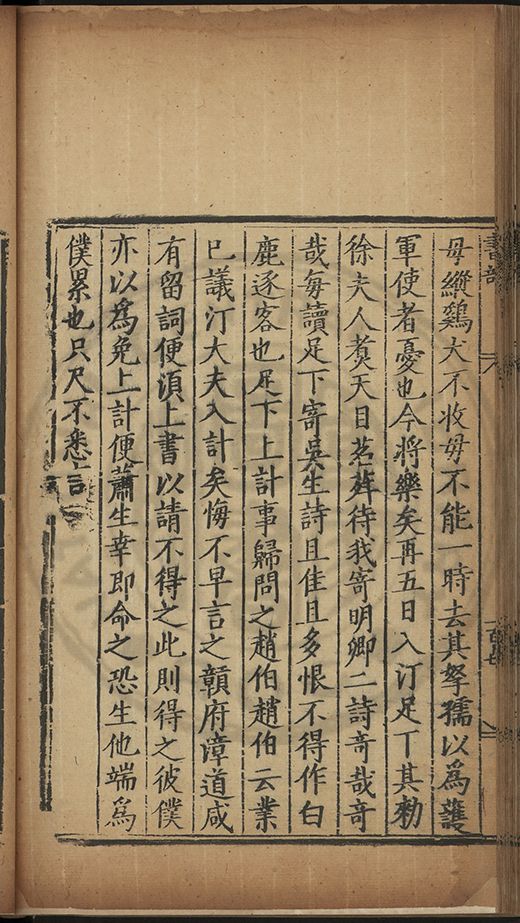 毋縱鷄犬不收毋不能一時去其孥孺以為護
軍使者憂也今將樂矣再五日入汀足下其勑
徐夫人煑天目茗葬待我寄明卿二詩奇哉奇
哉每讀足下寄吳生詩且佳且多恨不得作白
鹿逐客也足下上計事歸問之趙伯趙伯云業
已議汀大夫入計矣悔不早言之贛府漳道咸
有留詞便湏上書以請不得之此則得之彼僕
亦以為免上計便蕭生幸即命之恐生他端為
僕累也只尺不悉
書部
百七